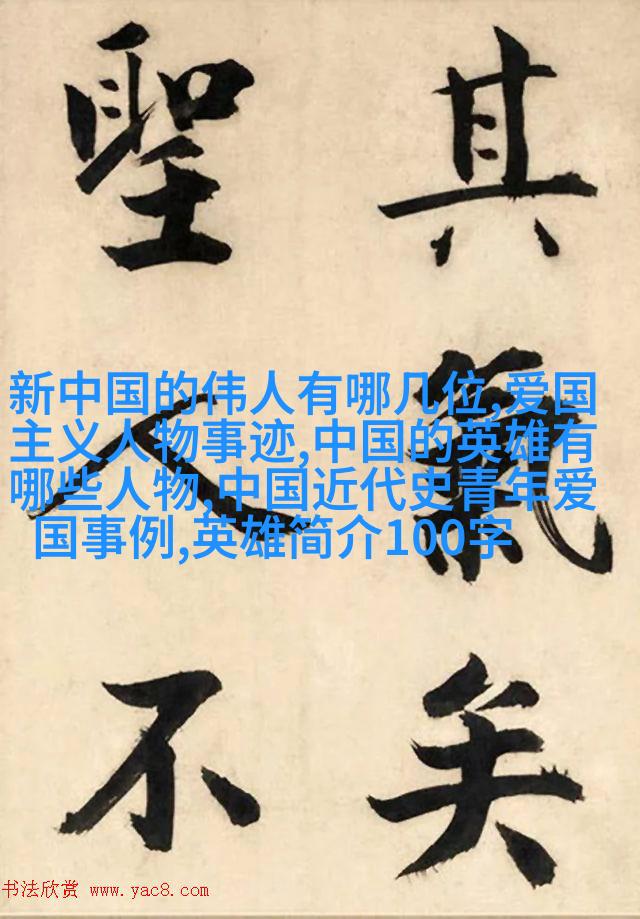 其氣矣
聖人不
新中国的伟人有哪几位,爱国
主义人物事迹,中国的英雄有
哪些人物,中国近代史青年爱
国事例,英雄简介100字
书法欣赏 www.yac8.com